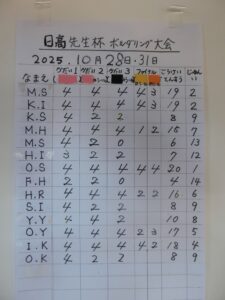 日高先生杯 ボルダリング大会
2025.10月28日・31日
なまえ かだい1 かだい2 かだい3 ファイナル ごうけい てんすう じゅんい
M.S 4 4 4 4 3 19 2
K.I 4 4 4 4 3 19 2
K.S 4 2 2 8 9
M.H 4 4 4 1 2 15 7
M.S 4 2 0 6 13
H.I 3 2 2 7 12
O.S 4 4 4 4 4 20 1
F.H 2 2 0 4 14
H.R 4 4 4 2 2 16 6
S.I 4 2 2 8 9
Y.Y 4 4 2 10 8
O.Y 4 4 4 2 3 17 5
I.K 4 4 4 4 2 18 4
O.K 4 2 2 8 9